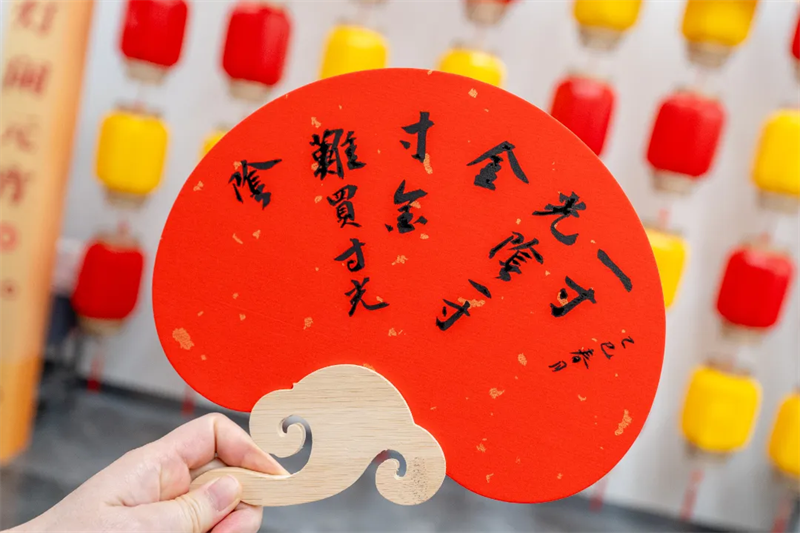 乙巳春月
一寸
光陰一寸
金
寸金
難買寸光
陰
灯闹元宵